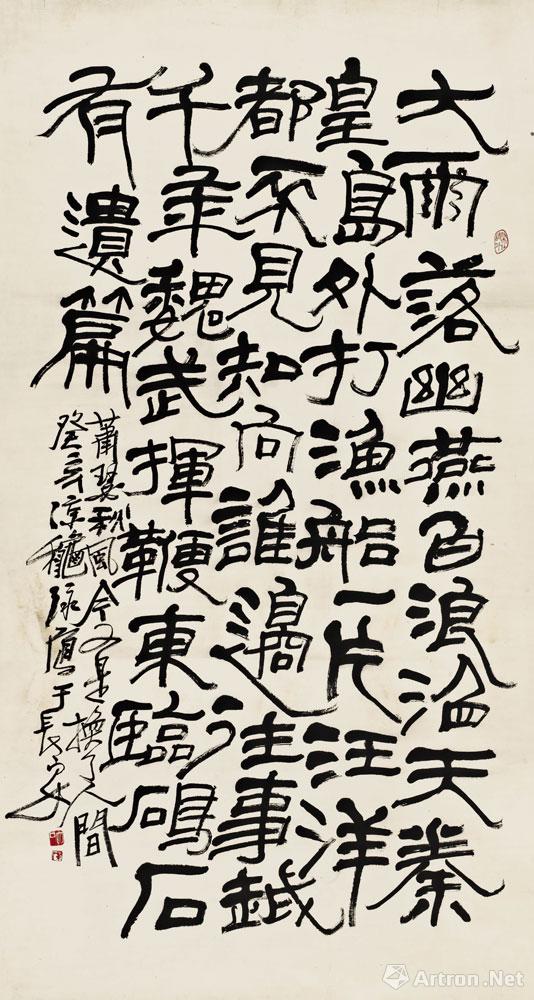 大雨落幽燕白浪滔天秦
皇島外打漁船一片汪洋
都不見知向誰邊往事越
千年魏武揮鞭東臨碣石
有遺篇
蕭瑟秋風今又是換了人間
癸亥涼穐于長安
Artron.Net